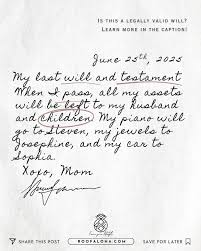 IS THIS A LEGALLY VALID WILL?
LEARN MORE IN THE CAPTION!
June 25th, 2025
My last will and testament
When I pass, all my assets
will be left to my husband
and children. My piano will
go to Steven, my jewels to
Josephine, and my car to
Sophia.
Xoxo, Mom
SHARE THIS POST
ROOFALOHA.COM
SAVE FOR LATER